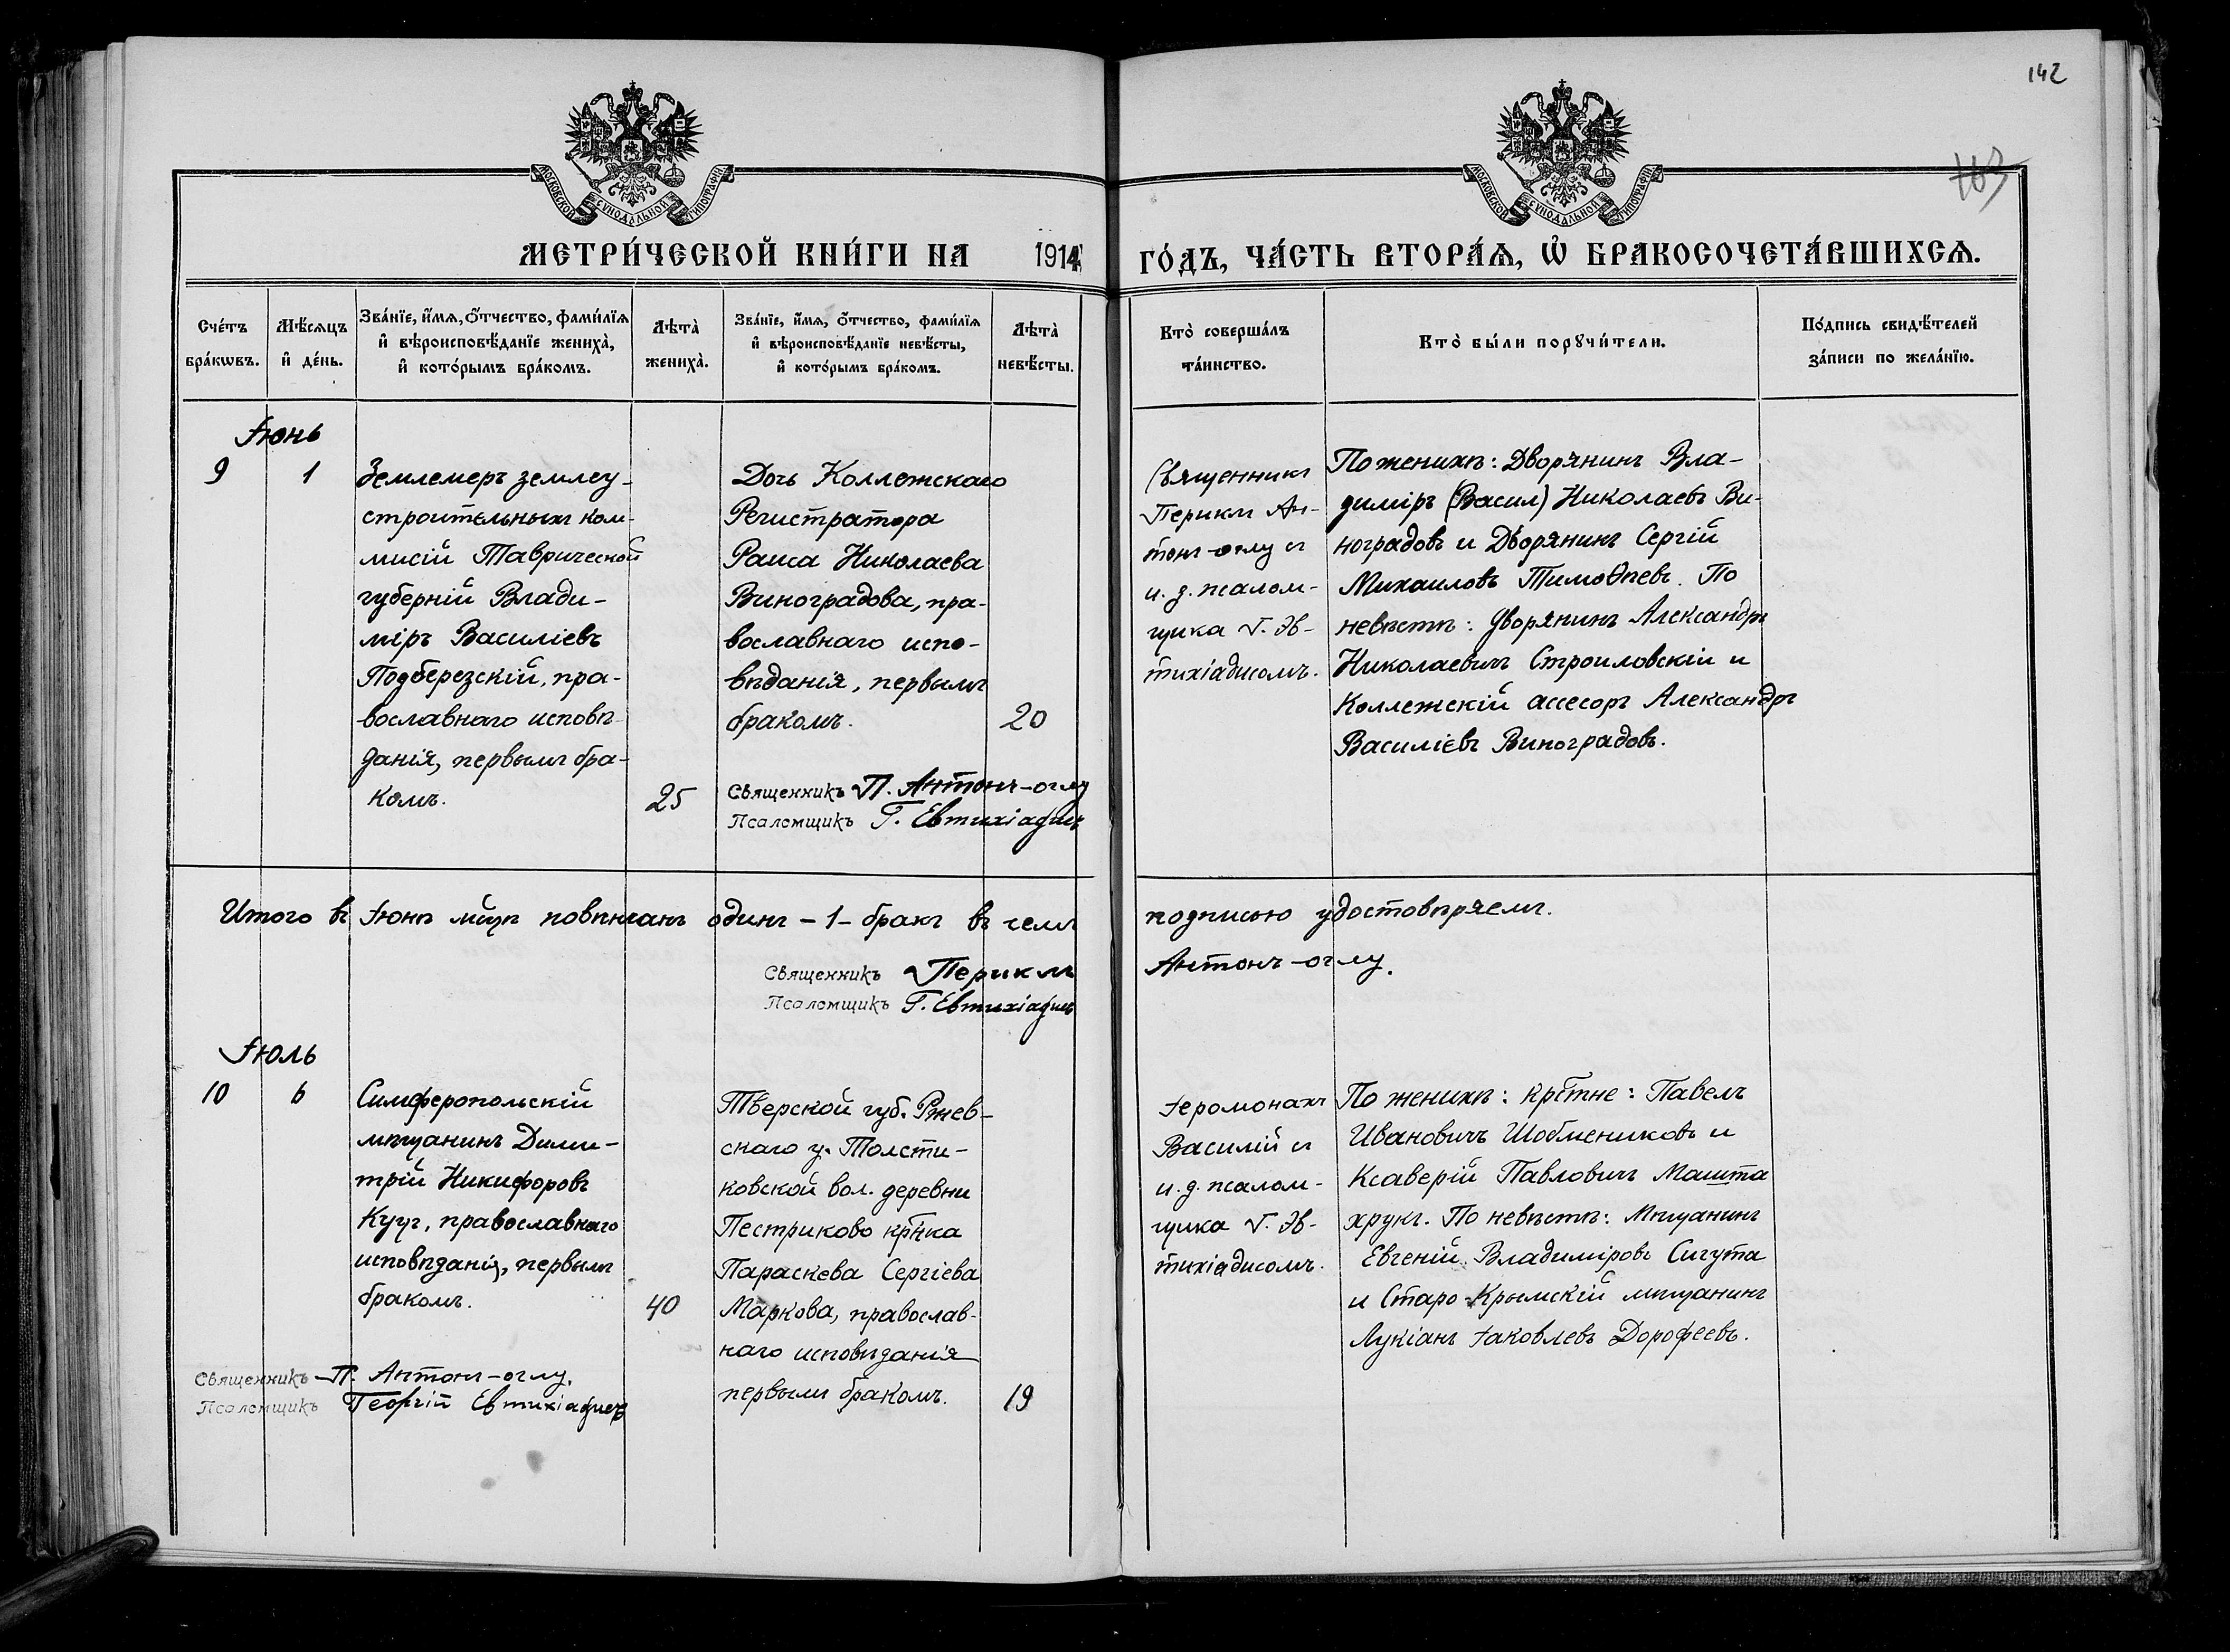 142
103
МОСКОВСКОЙ СѴНОДАЛЬНОЙ ТИПОГРАФІИ
МОСКОВСКОЙ СѴНОДАЛЬНОЙ ТИПОГРАФІИ
МЕТРИ́ЧЕСКОЙ КНИ́ГИ НА 1914 ГО́ДЪ, ЧА́СТЬ ВТОРА́Ѧ, Ѽ БРАКОСОЧЕТА́ВШИХСѦ.
Сче́тъ бра́кѡвъ.
Мѣ́сѧцъ и҆ де́нь.
Зва́нїе, и҆́мѧ, ѻ҆́тчество, фами́лїѧ
и҆ вѣроисповѣ́данїе жениха̀,
и҆ кото́рымъ бра́комъ.
Лѣта̀ жениха̀.
Зва́нїе, и҆́мѧ, ѻ҆́тчество, фами́лїѧ
и҆ вѣроисповѣ́данїе невѣ́сты,
и҆ кото́рымъ бра́комъ.
Лѣта̀ невѣ́сты.
Кто̀ соверша́лъ
та́инство.
Кто̀ бы́ли порꙋчи́тели.
По́дпись свидѣ́телей
за́писи по жела́нїю.
Іюнь
9 1
Землемеръ землеу-
строительныхъ ком-
мисій Таврической
губерніи Влади-
міръ Василіевъ
Подберезскій, пра-
вославнаго исповѣ-
данія, первымъ бра-
комъ.
25
Дочь Коллежскаго
Регистратора
Раиса Николаева
Виноградова, пра-
вославнаго испо-
вѣданія, первымъ
бракомъ.
20
Священникъ П. Антонъ-оглу
Псаломщикъ Г. Евтихіадисъ
Священникъ
Периклъ Ан-
тонъ-оглу и
и. д. псалом-
щика Г. Эв-
тихіадисомъ.
По женихѣ: Дворянинъ Вла-
димірь (Васил) Николаевъ Ви-
ноградовъ и Дворянинъ Сергій
Михаиловъ Тимоѳѣевъ. По
невѣстѣ: Дворянинъ Александръ
Николаевичъ Строиловскій и
Коллежскій ассесоръ Александръ
Василіевъ Виноградовъ.
Итого въ Іюнѣ мѣцѣ повѣнчанъ одинъ - 1 - бракъ въ чемъ подписью удостовѣряемъ.
Священникъ Периклъ Антонъ-оглу.
Псаломщикъ Г. Евтихіадисъ
Іюль
10 6
Симферопольскій
мѣщанинъ Дими-
трій Никифоровъ
Кущ, православнаго
исповѣданія, первымъ
бракомъ.
40
Священникъ П. Антонъ-оглу.
Псаломщикъ Георгій Евтихіадисъ
Тверской губ. Ржев-
скаго у. Толсти-
ковской вол. деревни
Пестриково крнка
Параскева Сергіева
Маркова, православ-
наго исповѣданія
первымъ бракомъ.
19
Іеромонахъ
Василій и
и. д. псалом-
щика Г. Эв-
тихіадисомъ.
По женихѣ: крстне: Павелъ
Ивановичъ Шобмениковъ и
Ксаверій Павловичъ Машта
хрукъ. По невѣстѣ: Мѣщанинъ
Евгеній Владиміровъ Сигута
и Старо-Крымскій мѣщанинъ
Лукіанъ Іаковлевъ Дорофеевъ.